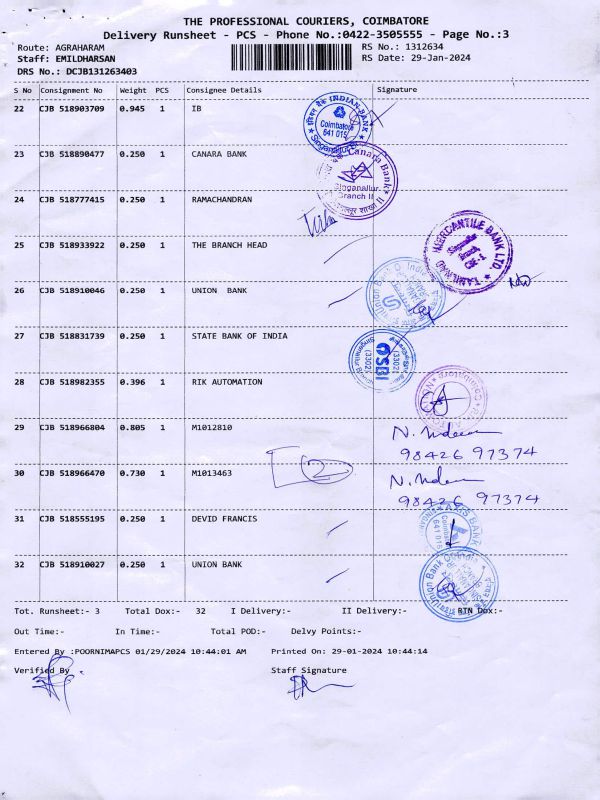 THE PROFESSIONAL COURIERS, COIMBATORE
Delivery Runsheet - PCS - Phone No.:0422-3505555 - Page No.:3
Route: AGRAHARAM RS No.: 1312634
Staff: EMILDHARSAN RS Date: 29-Jan-2024
DRS No.: DCJB131263403
S No Consignment No Weight PCS Consignee Details Signature
22 CJB 518903709 0.945 1 IB
INDIAN BANK Coimbatore 641 015 Singanallur
23 CJB 518890477 0.250 1 CANARA BANK
Canara Bank Singanallur Branch II
24 CJB 518777415 0.250 1 RAMACHANDRAN
25 CJB 518933922 0.250 1 THE BRANCH HEAD
TAMILNAD MERCANTILE BANK LTD. Singanallur Branch
26 CJB 518910046 0.250 1 UNION BANK
27 CJB 518831739 0.250 1 STATE BANK OF INDIA
SBI (3302) (3302)
28 CJB 518982355 0.396 1 RIK AUTOMATION
29 CJB 518966804 0.805 1 M1012810
98426 97374
30 CJB 518966470 0.730 1 M1013463 2
98426 97374
31 CJB 518555195 0.250 1 DEVID FRANCIS
AXIS BANK
32 CJB 518910027 0.250 1 UNION BANK
Union Bank
Tot. Runsheet:- 3 Total Dox:- 32 I Delivery:- II Delivery:- RTN Dox:-
Out Time:- In Time:- Total POD:- Delvy Points:-
Entered By :POORNIMAPCS 01/29/2024 10:44:01 AM Printed On: 29-01-2024 10:44:14
Verified By Staff Signature